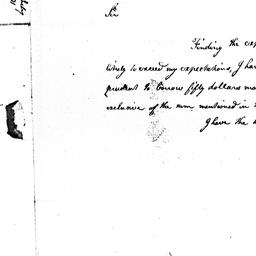 Sir
Finding the ex
likely to exceed my expectations, I ha
prudent to borrow fifty dollars mo
exclusive of the sum mentioned in
I have the